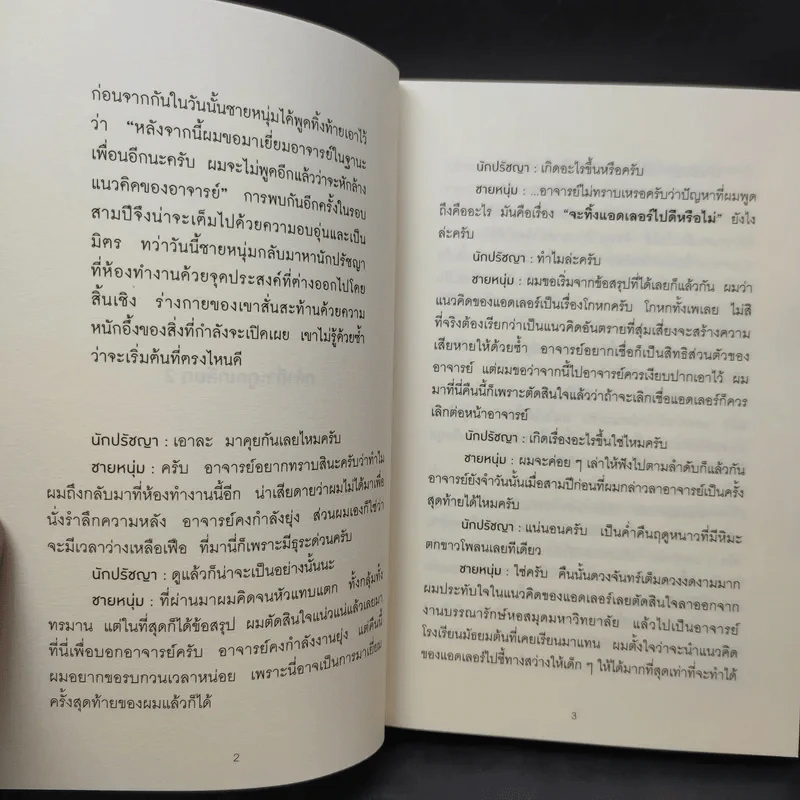 ก่อนจากกันในวันนั้นชายหนุ่มได้พูดทิ้งท้ายเอาไว้
ว่า “หลังจากนี้ผมขอมาเยี่ยมอาจารย์ในฐานะ
เพื่อนอีกนะครับ ผมจะไม่พูดอีกแล้วว่าจะหักล้าง
แนวคิดของอาจารย์” การพบกันอีกครั้งในรอบ
สามปีจึงน่าจะเต็มไปด้วยความอบอุ่นและเป็น
มิตร ทว่าวันนี้ชายหนุ่มกลับมาหานักปรัชญา
ที่ห้องทำงานด้วยจุดประสงค์ที่ต่างออกไปโดย
สิ้นเชิง ร่างกายของเขาสั่นสะท้านด้วยความ
หนักอึ้งของสิ่งที่กำลังจะเปิดเผย เขาไม่รู้ด้วยซ้ำ
ว่าจะเริ่มต้นที่ตรงไหนดี
นักปรัชญา : เอาละ มาคุยกันเลยไหมครับ
ชายหนุ่ม : ครับ อาจารย์อยากทราบสินะครับว่าทำไม
ผมถึงกลับมาที่ห้องทำงานนี้อีก น่าเสียดายว่าผมไม่ได้มาเพื่อ
นั่งรำลึกความหลัง อาจารย์คงกำลังยุ่ง ส่วนผมเองก็ใช่ว่า
จะมีเวลาว่างเหลือเฟือ ที่มานี่ก็เพราะมีธุระด่วนครับ
นักปรัชญา : ดูแล้วก็น่าจะเป็นอย่างนั้นนะ
ชายหนุ่ม : ที่ผ่านมาผมคิดจนหัวแทบแตก ทั้งกลุ้มทั้ง
ทรมาน แต่ในที่สุดก็ได้ข้อสรุป ผมตัดสินใจแน่วแน่แล้วเลยมา
ที่นี่เพื่อบอกอาจารย์ครับ อาจารย์คงกำลังงานยุ่ง แต่คืนนี้
ผมอยากขอรบกวนเวลาหน่อย เพราะนี่อาจเป็นการมาเยี่ยม
ครั้งสุดท้ายของผมแล้วก็ได้
2
นักปรัชญา : เกิดอะไรขึ้นหรือครับ
ชายหนุ่ม : ...อาจารย์ไม่ทราบเหรอครับว่าปัญหาที่ผมพูด
ถึงคืออะไร มันคือเรื่อง “จะทิ้งแอดเลอร์ไปดีหรือไม่” ยังไง
ล่ะครับ
นักปรัชญา : ทำไมล่ะครับ
ชายหนุ่ม : ผมขอเริ่มจากข้อสรุปที่ได้เลยก็แล้วกัน ผมว่า
แนวคิดของแอดเลอร์เป็นเรื่องโกหกครับ โกหกทั้งเพเลย ไม่สิ
ที่จริงต้องเรียกว่าเป็นแนวคิดอันตรายที่สุ่มเสี่ยงจะสร้างความ
เสียหายให้ด้วยซ้ำ อาจารย์อยากเชื่อก็เป็นสิทธิส่วนตัวของ
อาจารย์ แต่ผมขอว่าจากนี้ไปอาจารย์ควรเงียบปากเอาไว้ ผม
มาที่นี่คืนนี้ก็เพราะตัดสินใจแล้วว่าถ้าจะเลิกเชื่อแอดเลอร์ก็ควร
เลิกต่อหน้าอาจารย์
นักปรัชญา : เกิดเรื่องอะไรขึ้นใช่ไหมครับ
ชายหนุ่ม : ผมจะค่อย ๆ เล่าให้ฟังไปตามลำดับก็แล้วกัน
อาจารย์ยังจำวันนั้นเมื่อสามปีก่อนที่ผมกล่าวลาอาจารย์เป็นครั้ง
สุดท้ายได้ไหมครับ
นักปรัชญา : แน่นอนครับ เป็นค่ำคืนฤดูหนาวที่มีหิมะ
ตกขาวโพลนเลยทีเดียว
ชายหนุ่ม : ใช่ครับ คืนนั้นดวงจันทร์เต็มดวงงดงามมาก
ผมประทับใจในแนวคิดของแอดเลอร์เลยตัดสินใจลาออกจาก
งานบรรณารักษ์หอสมุดมหาวิทยาลัย แล้วไปเป็นอาจารย์
โรงเรียนมัธยมต้นที่เคยเรียนมาแทน ผมตั้งใจว่าจะนำแนวคิด
ของแอดเลอร์ไปชี้ทางสว่างให้เด็ก ๆ ให้ได้มากที่สุดเท่าที่จะทำได้
3